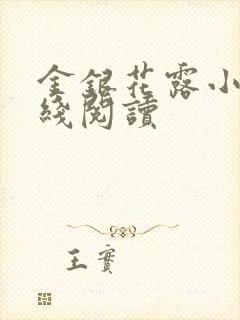 金銀花露小
綫閱讀
王實